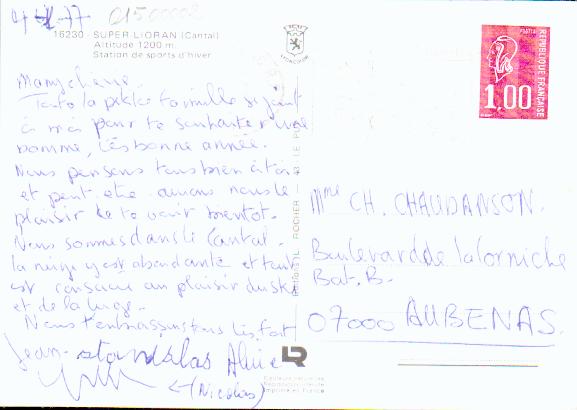 01500002
16230 - SUPER-LIORAN (Cantal)
Altitude 1200 m.
Station de sports d'hiver
REPUBLIQUE FRANÇAISE
POSTES
1,00
Mamy chérie.
Toute la petite famille se joint
à moi pour te souhaiter une
bonne, très bonne année.
Nous pensons tous bien à toi
et peut être aurons nous le
plaisir de te voir bientôt.
Nous sommes dans le Cantal.
la neige y est abondante et tout
est consacré au plaisir du ski
et de la luge.
Nous t'embrassons tous très fort
Jean-Stanislas Aline
(Nicolas)
Mme CH. CHAUDANSON.
Boulevard de la Corniche
Bat. B.
07000 AUBENAS.
LR
Imprimé en France